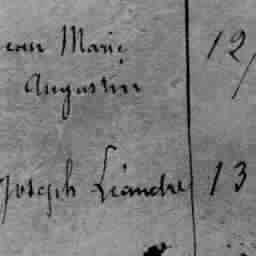 Jean Marie 12,
Augustin
Joseph Léandre 13